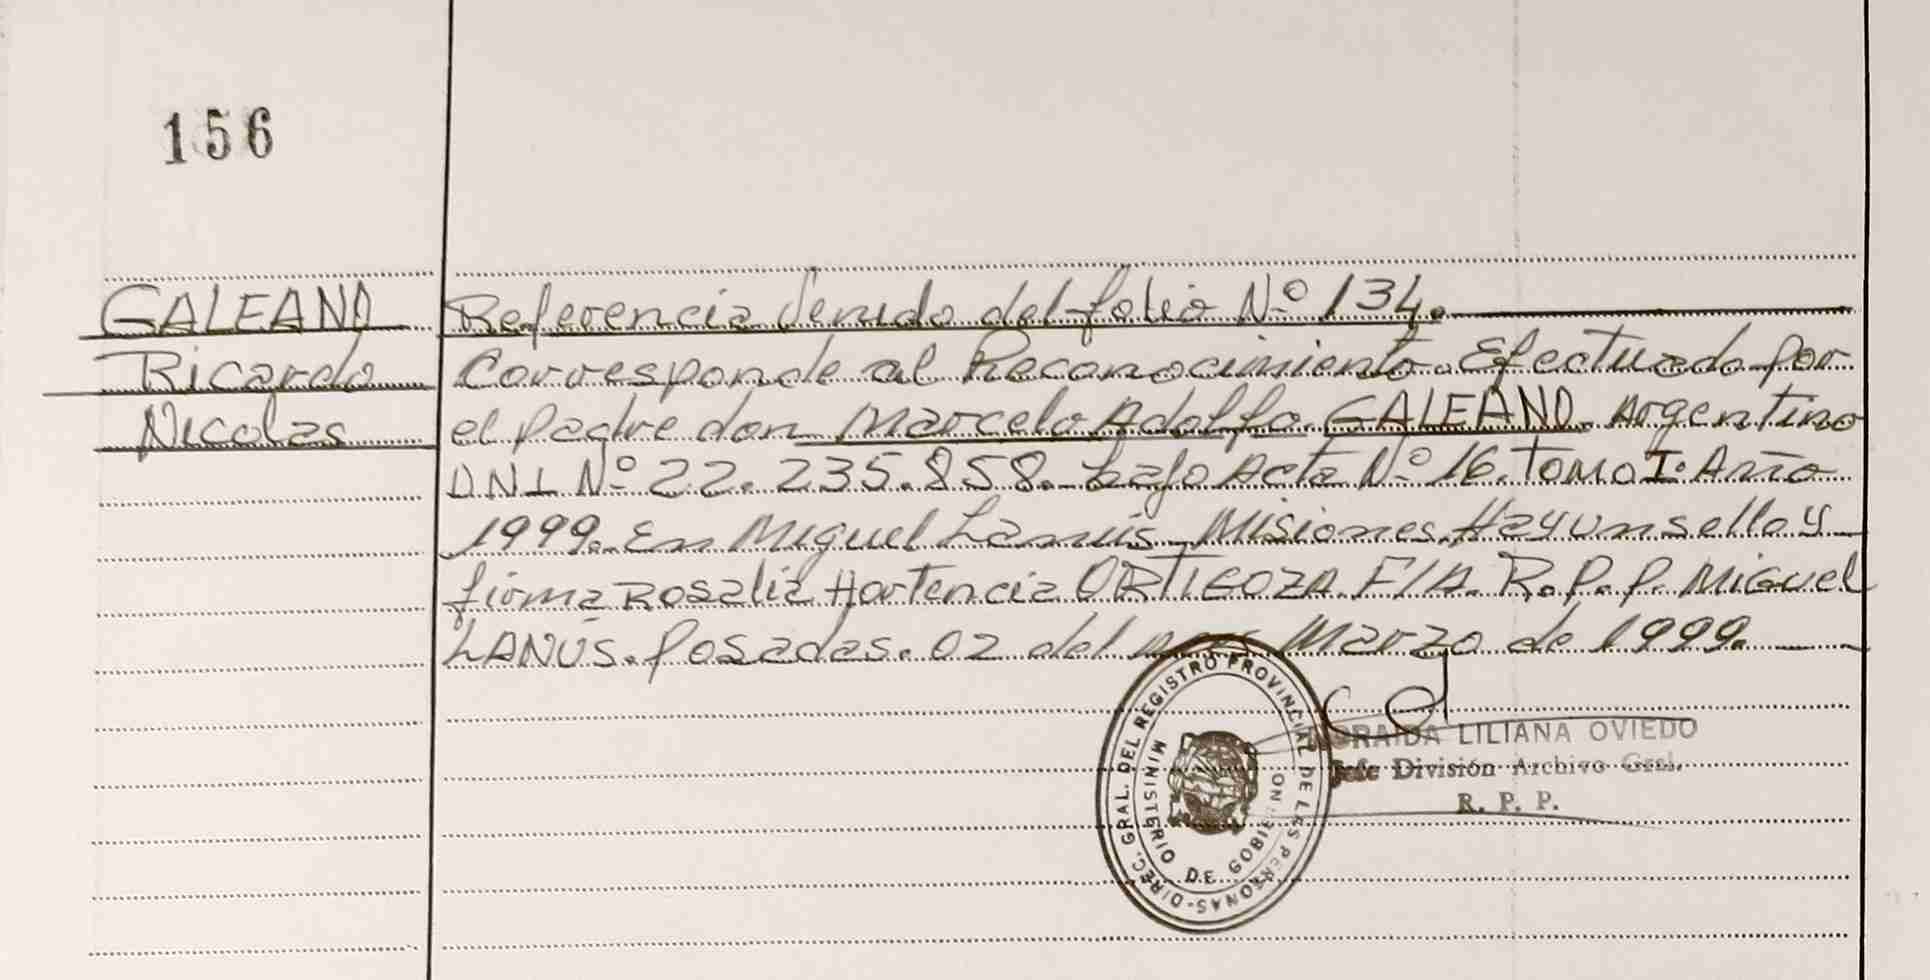 156
GALEANO
Ricardo
Nicolas
Referencia Venido del folio Nº 134.
Corresponde al Reconocimiento. Efectuado por
el padre don Marcelo Adolfo GALEANO. Argentino
DNI Nº 22.235.858. bajo Acta Nº 16. TOMO I. Año
1999. En Miguel Lanús. Misiones. Hay un sello y
firma Rosalia Hortencia ORTIGOZA. F/A. R.P.P. MIGUEL
LANÚS. Posadas. 02 del mes Marzo de 1999.
DIREC. GRAL. DEL REGISTRO PROVINCIAL DE LAS PERSONAS-
MINISTERIO DE GOBIERNO
LILIANA OVIEDO
Jefe División Archivo Gral.
R. P. P.